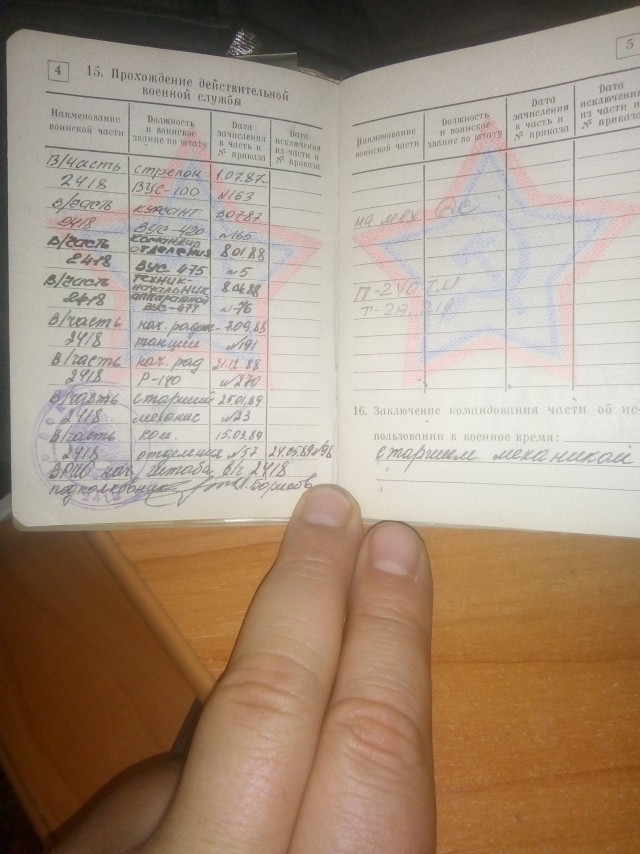 4 15. Прохождение действительной
военной службы
Наименование воинской части Должность и воинское звание по штату Дата зачисления в часть и № приказа Дата исключения из части и № приказа
В/часть стрелок 1.07.87
2418 ВУС-100 №163
В/часть курсант
2418 ВУС-420 №165
В/часть командир отделения 8.01.88
2418 ВУС 475 №5
В/часть
2418 №76
В/часть нач. радиос-
2418 танции №191
В/часть нач. рад 21.12.88
2418 Р-140 №270
В/часть старший 25.01.89
2418 механик №23
В/часть ком. 15.03.89
2418 отделения №57 24.05.89 №96
ВРИО нач. штаба в/ч 2418
подполковник Борисов
5
Наименование воинской части Должность и воинское звание по штату Дата зачисления в часть и № приказа Дата исключения из части и № приказа
на мех
16. Заключение командования части об ис-
пользовании в военное время:
старшим механиком